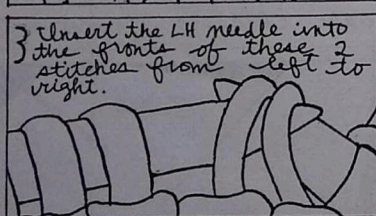 3 Insert the LH needle into
the fronts of these 2
stitches from left to
right.